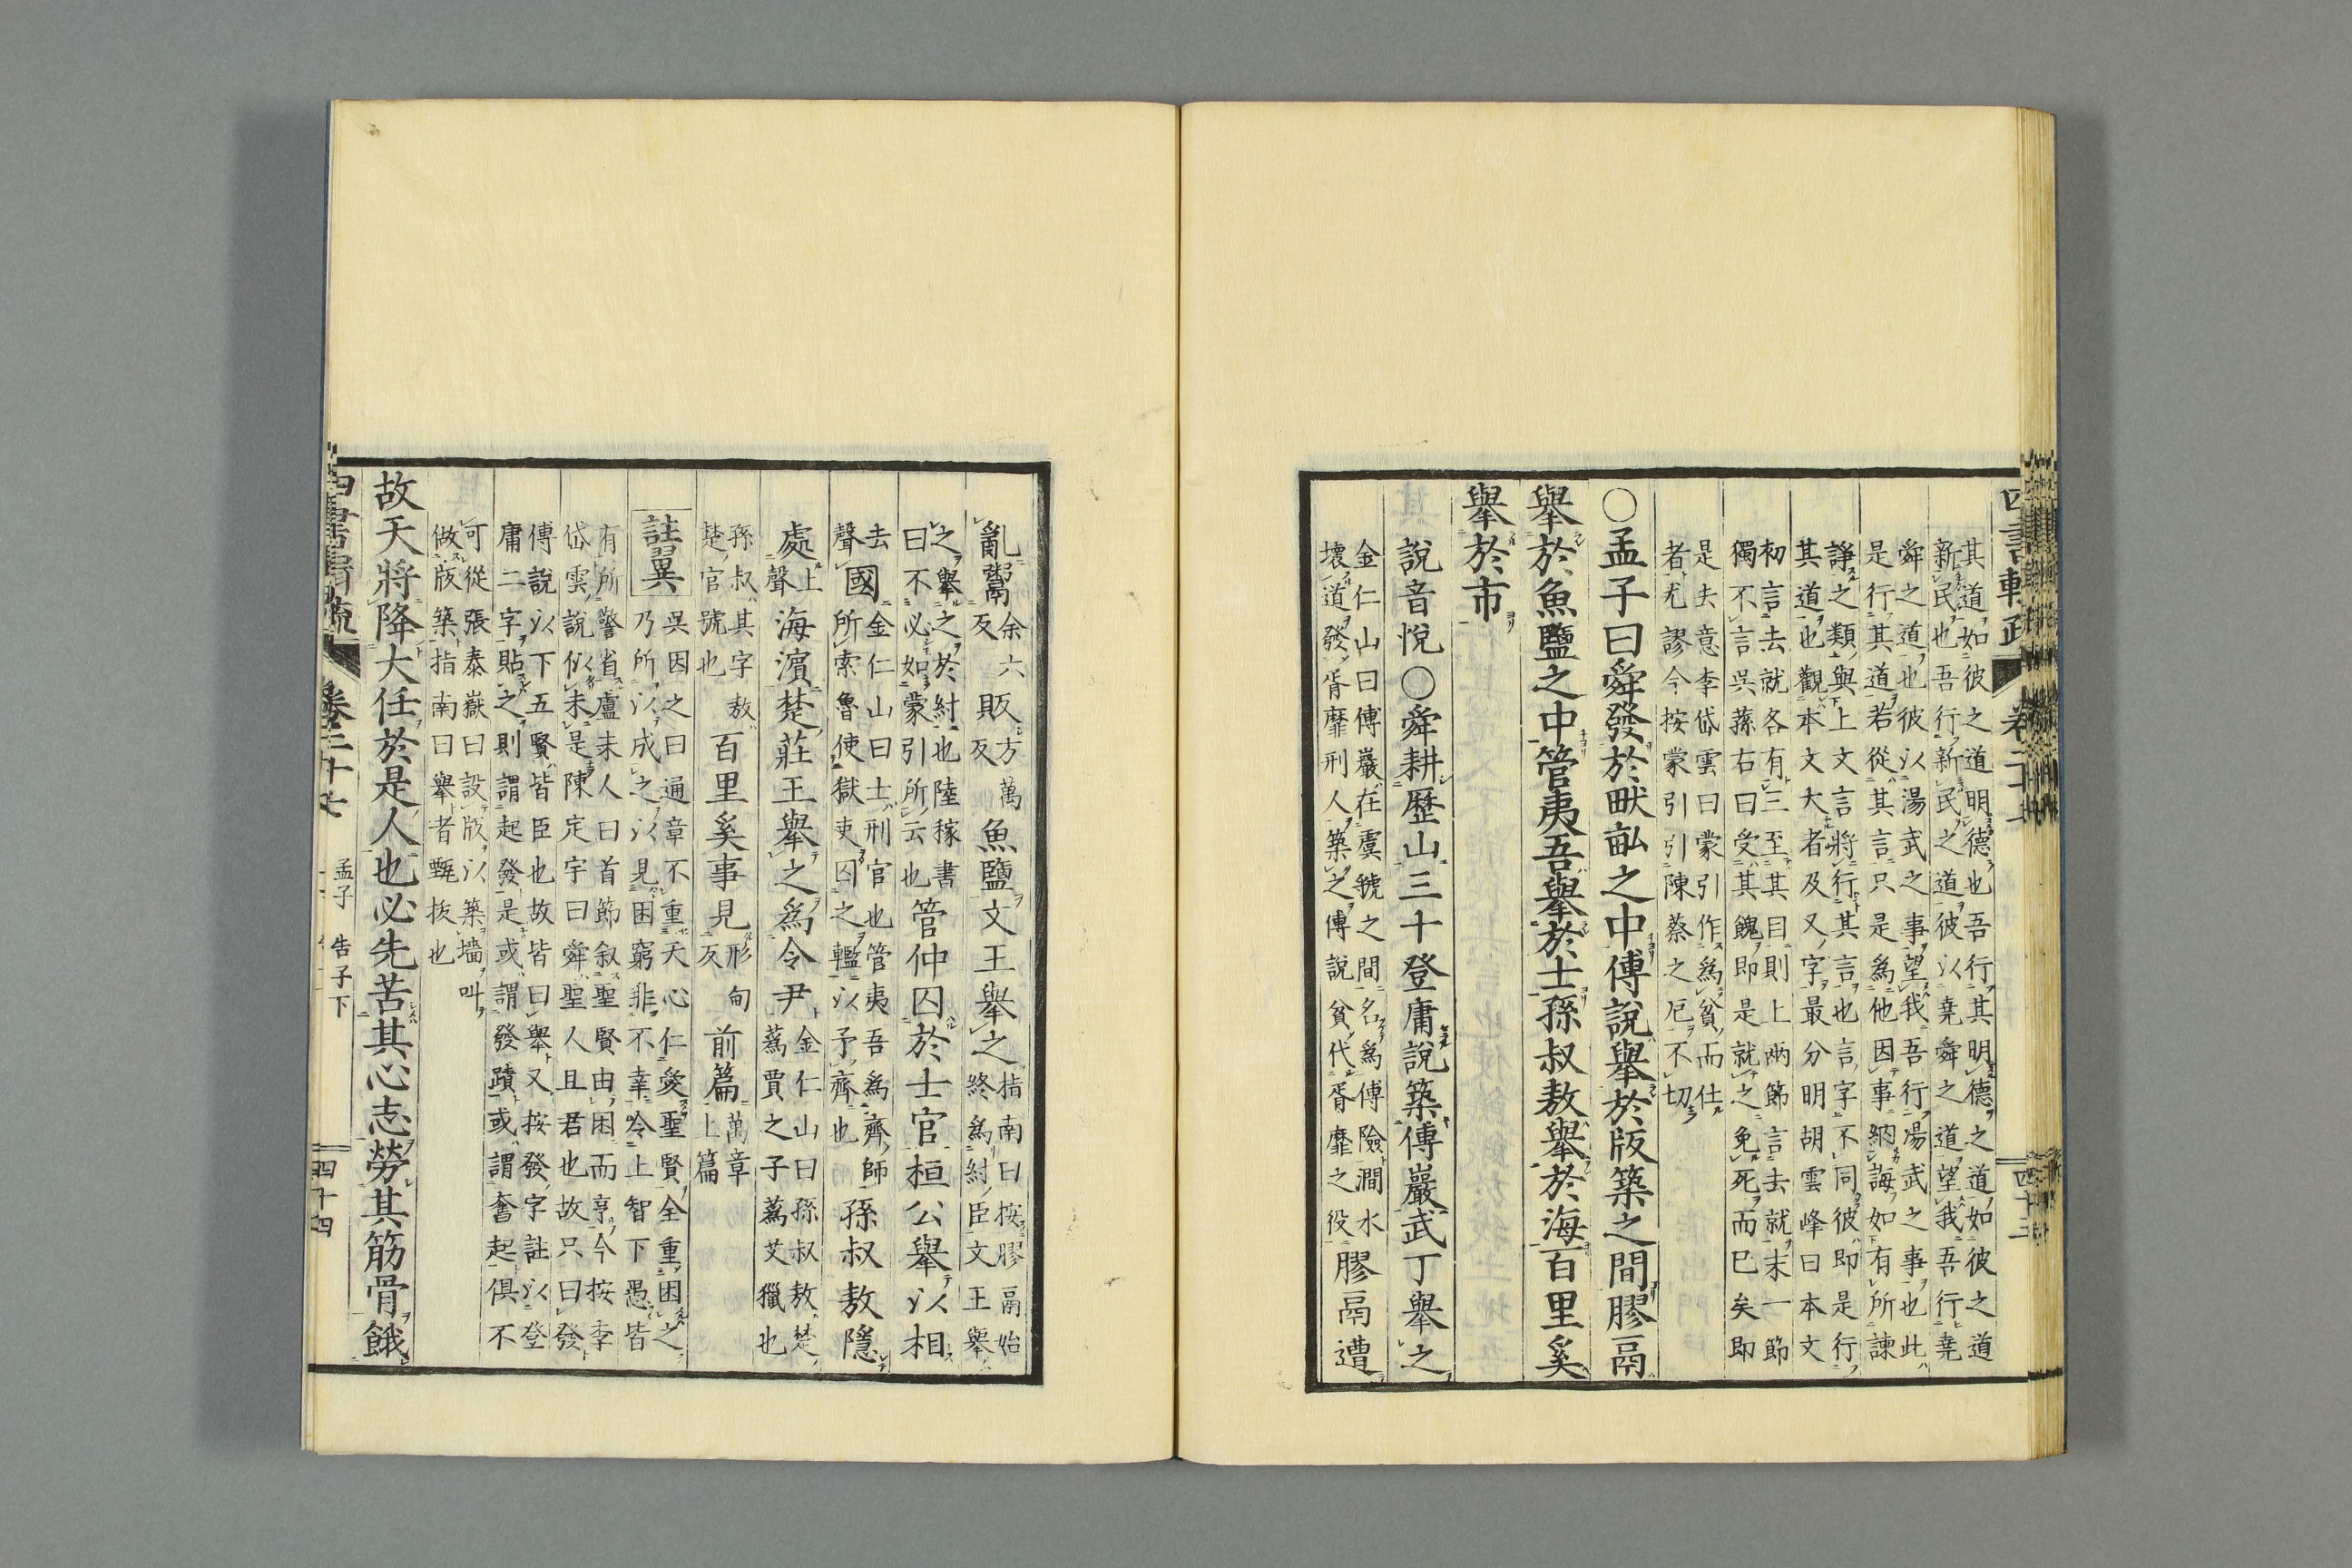 其道如彼之道明德也吾行其明德之道如彼之道
新民也吾行新民之道彼以堯舜之道望我吾行堯
舜之道也彼以湯武之事望我吾行湯武之事也此
是行其道若從其言只是為他因事納誨如有所諫
諍之類與上文言將行其言也言字不同彼即是行
其道也觀本文大者及又字最分明胡雲峰曰本文
初言去就各有三至其目則上兩節言去就末一節
獨不言吳蓀右曰受其餽即是就之免死而已矣即
是去意李岱雲曰蒙引作為貧而仕
者尤謬今按蒙引引陳蔡之厄不切
○孟子曰舜發於畎畝之中傅說舉於版築之間膠鬲
舉於魚鹽之中管夷吾舉於士孫叔敖舉於海百里奚
舉於市
說音悅○舜耕歷山三十登庸說築傅巖武丁舉之
金仁山曰傅巖在虞虢之間名為傅險澗水
壞道發胥靡刑人築之傅說貧代胥靡之役
膠鬲遭
亂鬻
余六
反
販
方萬
反
魚鹽文王舉之
指南曰按膠鬲始
終為紂臣文王舉
之舉之於紂也陸稼書
曰不必如蒙引所云也
管仲囚於士官桓公舉以相
去
聲
國
金仁山曰士刑官也管夷吾為齊師
所索魯使獄吏囚之轞以予齊也
孫叔敖隱
處
上
聲
海濱楚莊王舉之為令尹
金仁山曰孫叔敖楚
蒍賈之子蒍艾獵也
孫叔其字敖
楚官號也
百里奚事見
形甸
反
前篇
萬章
上篇
註翼
吳因之曰通章不重天心仁愛聖賢全重困之
乃所以成之以見困窮非不幸令上智下愚皆
有所警省盧未人曰首節叙聖賢由困而亨今按李
岱雲說似未是陳定宇曰舜聖人且君也故只曰發
傅說以下五賢皆臣也故皆曰舉又按發字註以登
庸二字貼之則謂起發是或謂發蹟或謂奮起俱不
可從張泰嶽曰設版以築墻叫
做版築指南曰舉者甄拔也
故天將降大任於是人也必先苦其心志勞其筋骨餓
卷二十七
孟子
告子下
四十四
四十三